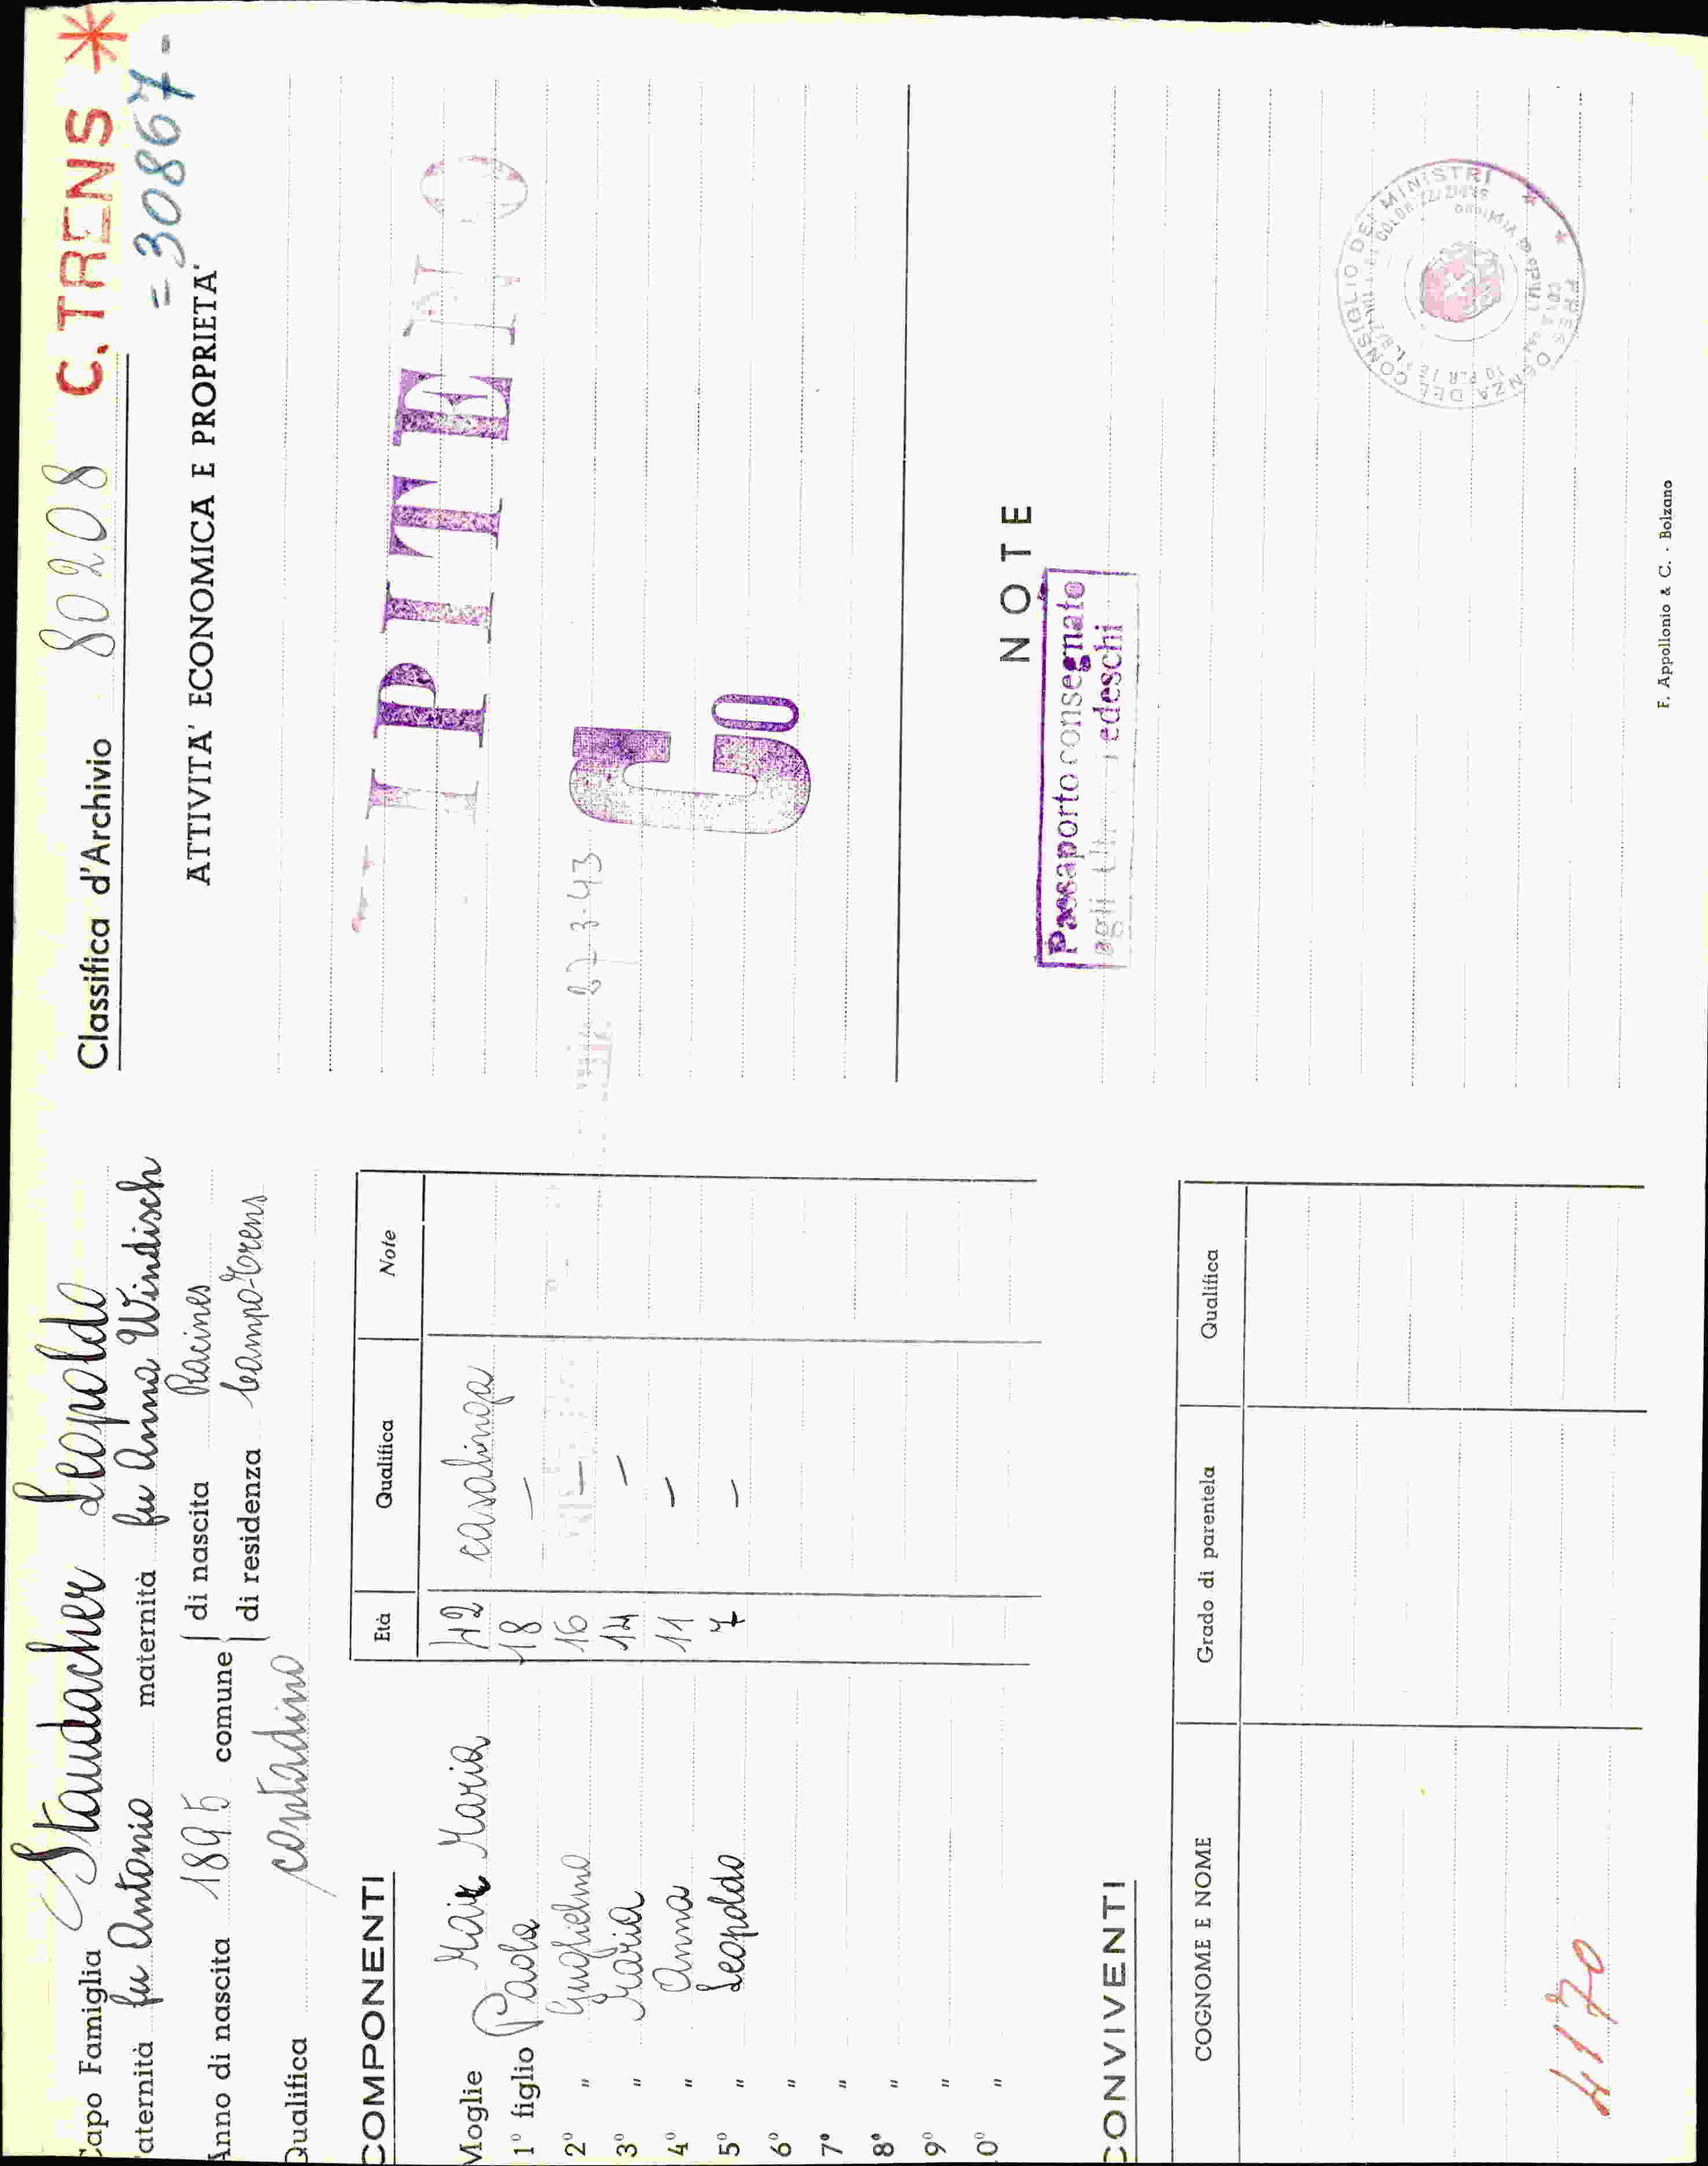 Capo Famiglia Staudacher Leopoldo
Paternità fu Antonio maternità fu Anna Windisch
Anno di nascita 1895 comune { di nascita Racines
di residenza Campo-Trens
Qualifica contadino
COMPONENTI
Età Qualifica Note
Moglie Mair Maria 42 casalinga
1° figlio Paola 18 —
2° " Guglielmo 16 —
3° " Maria 14 —
4° " Anna 11 —
5° " Leopoldo 7 —
6° "
7° "
8° "
9° "
0° "
CONVIVENTI
COGNOME E NOME Grado di parentela Qualifica
4170
Classifica d'Archivio 80208 C. TRENS *
= 30867 -
ATTIVITA' ECONOMICA E PROPRIETA'
IPITENO
27-3-43
Co
NOTE
Passaporto consegnato
agli edeschi
PRES DENZA DEL CONSIGLIO DEI MINISTRI
F. Appollonio & C. - Bolzano